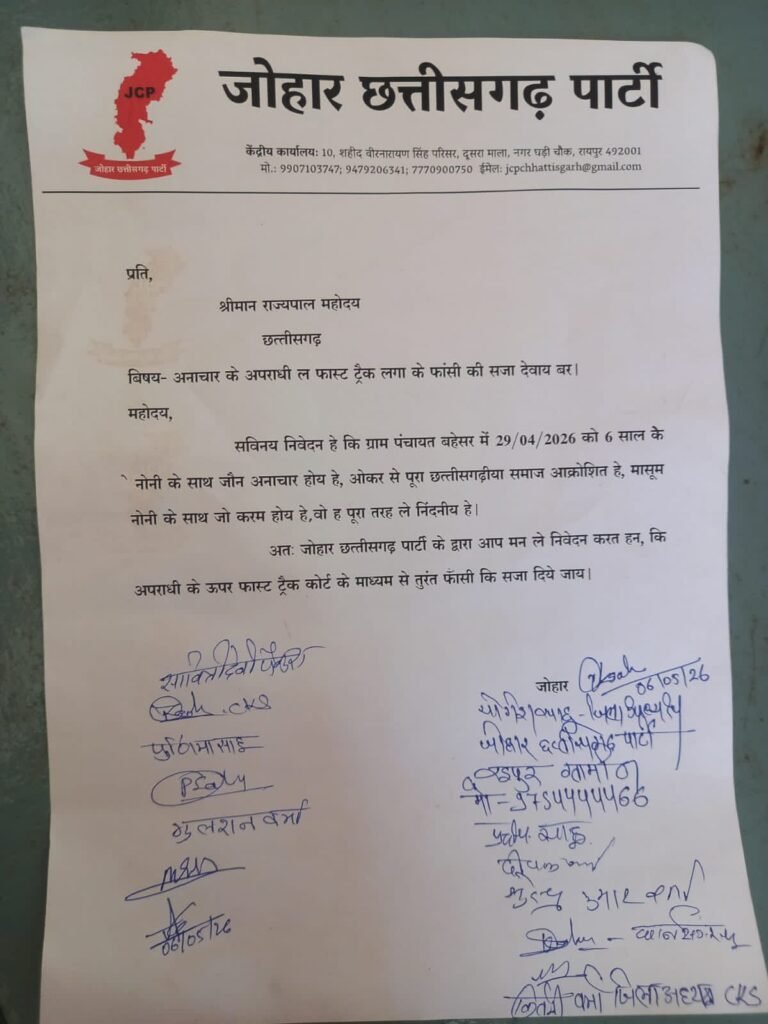 JCP
जोहार छत्तीसगढ़ पार्टी
जोहार छत्तीसगढ़ पार्टी
केंद्रीय कार्यालय: 10, शहीद वीरनारायण सिंह परिसर, दूसरा माला, नगर घड़ी चौक, रायपुर 492001
मो.: 9907103747; 9479206341; 7770900750 ईमेल: jcpchhattisgarh@gmail.com
प्रति,
श्रीमान राज्यपाल महोदय
छत्तीसगढ़
बिषय- अनाचार के अपराधी ल फास्ट ट्रैक लगा के फांसी की सजा देवाय बर।
महोदय,
सविनय निवेदन हे कि ग्राम पंचायत बहेसर में 29/04/2026 को 6 साल के
नोनी के साथ जौन अनाचार होय हे, ओकर से पूरा छत्तीसगढ़ीया समाज आक्रोशित हे, मासूम
नोनी के साथ जो करम होय हे,वो ह पूरा तरह ले निंदनीय हे।
अतः जोहार छत्तीसगढ़ पार्टी के द्वारा आप मन ले निवेदन करत हन, कि
अपराधी के ऊपर फास्ट ट्रैक कोर्ट के माध्यम से तुरंत फाँसी कि सजा दिये जाय।
जोहार
06/05/26
जिला अध्यक्ष
जोहार छत्तीसगढ़ पार्टी
रायपुर ग्रामीण
मो - 9754444466
प्रदीप साहू
कुमार वर्मा
वर्मा जिला अध्यक्ष CKS
CKS
पुर्णिमा साहू
गुलशन वर्मा
06/05/26